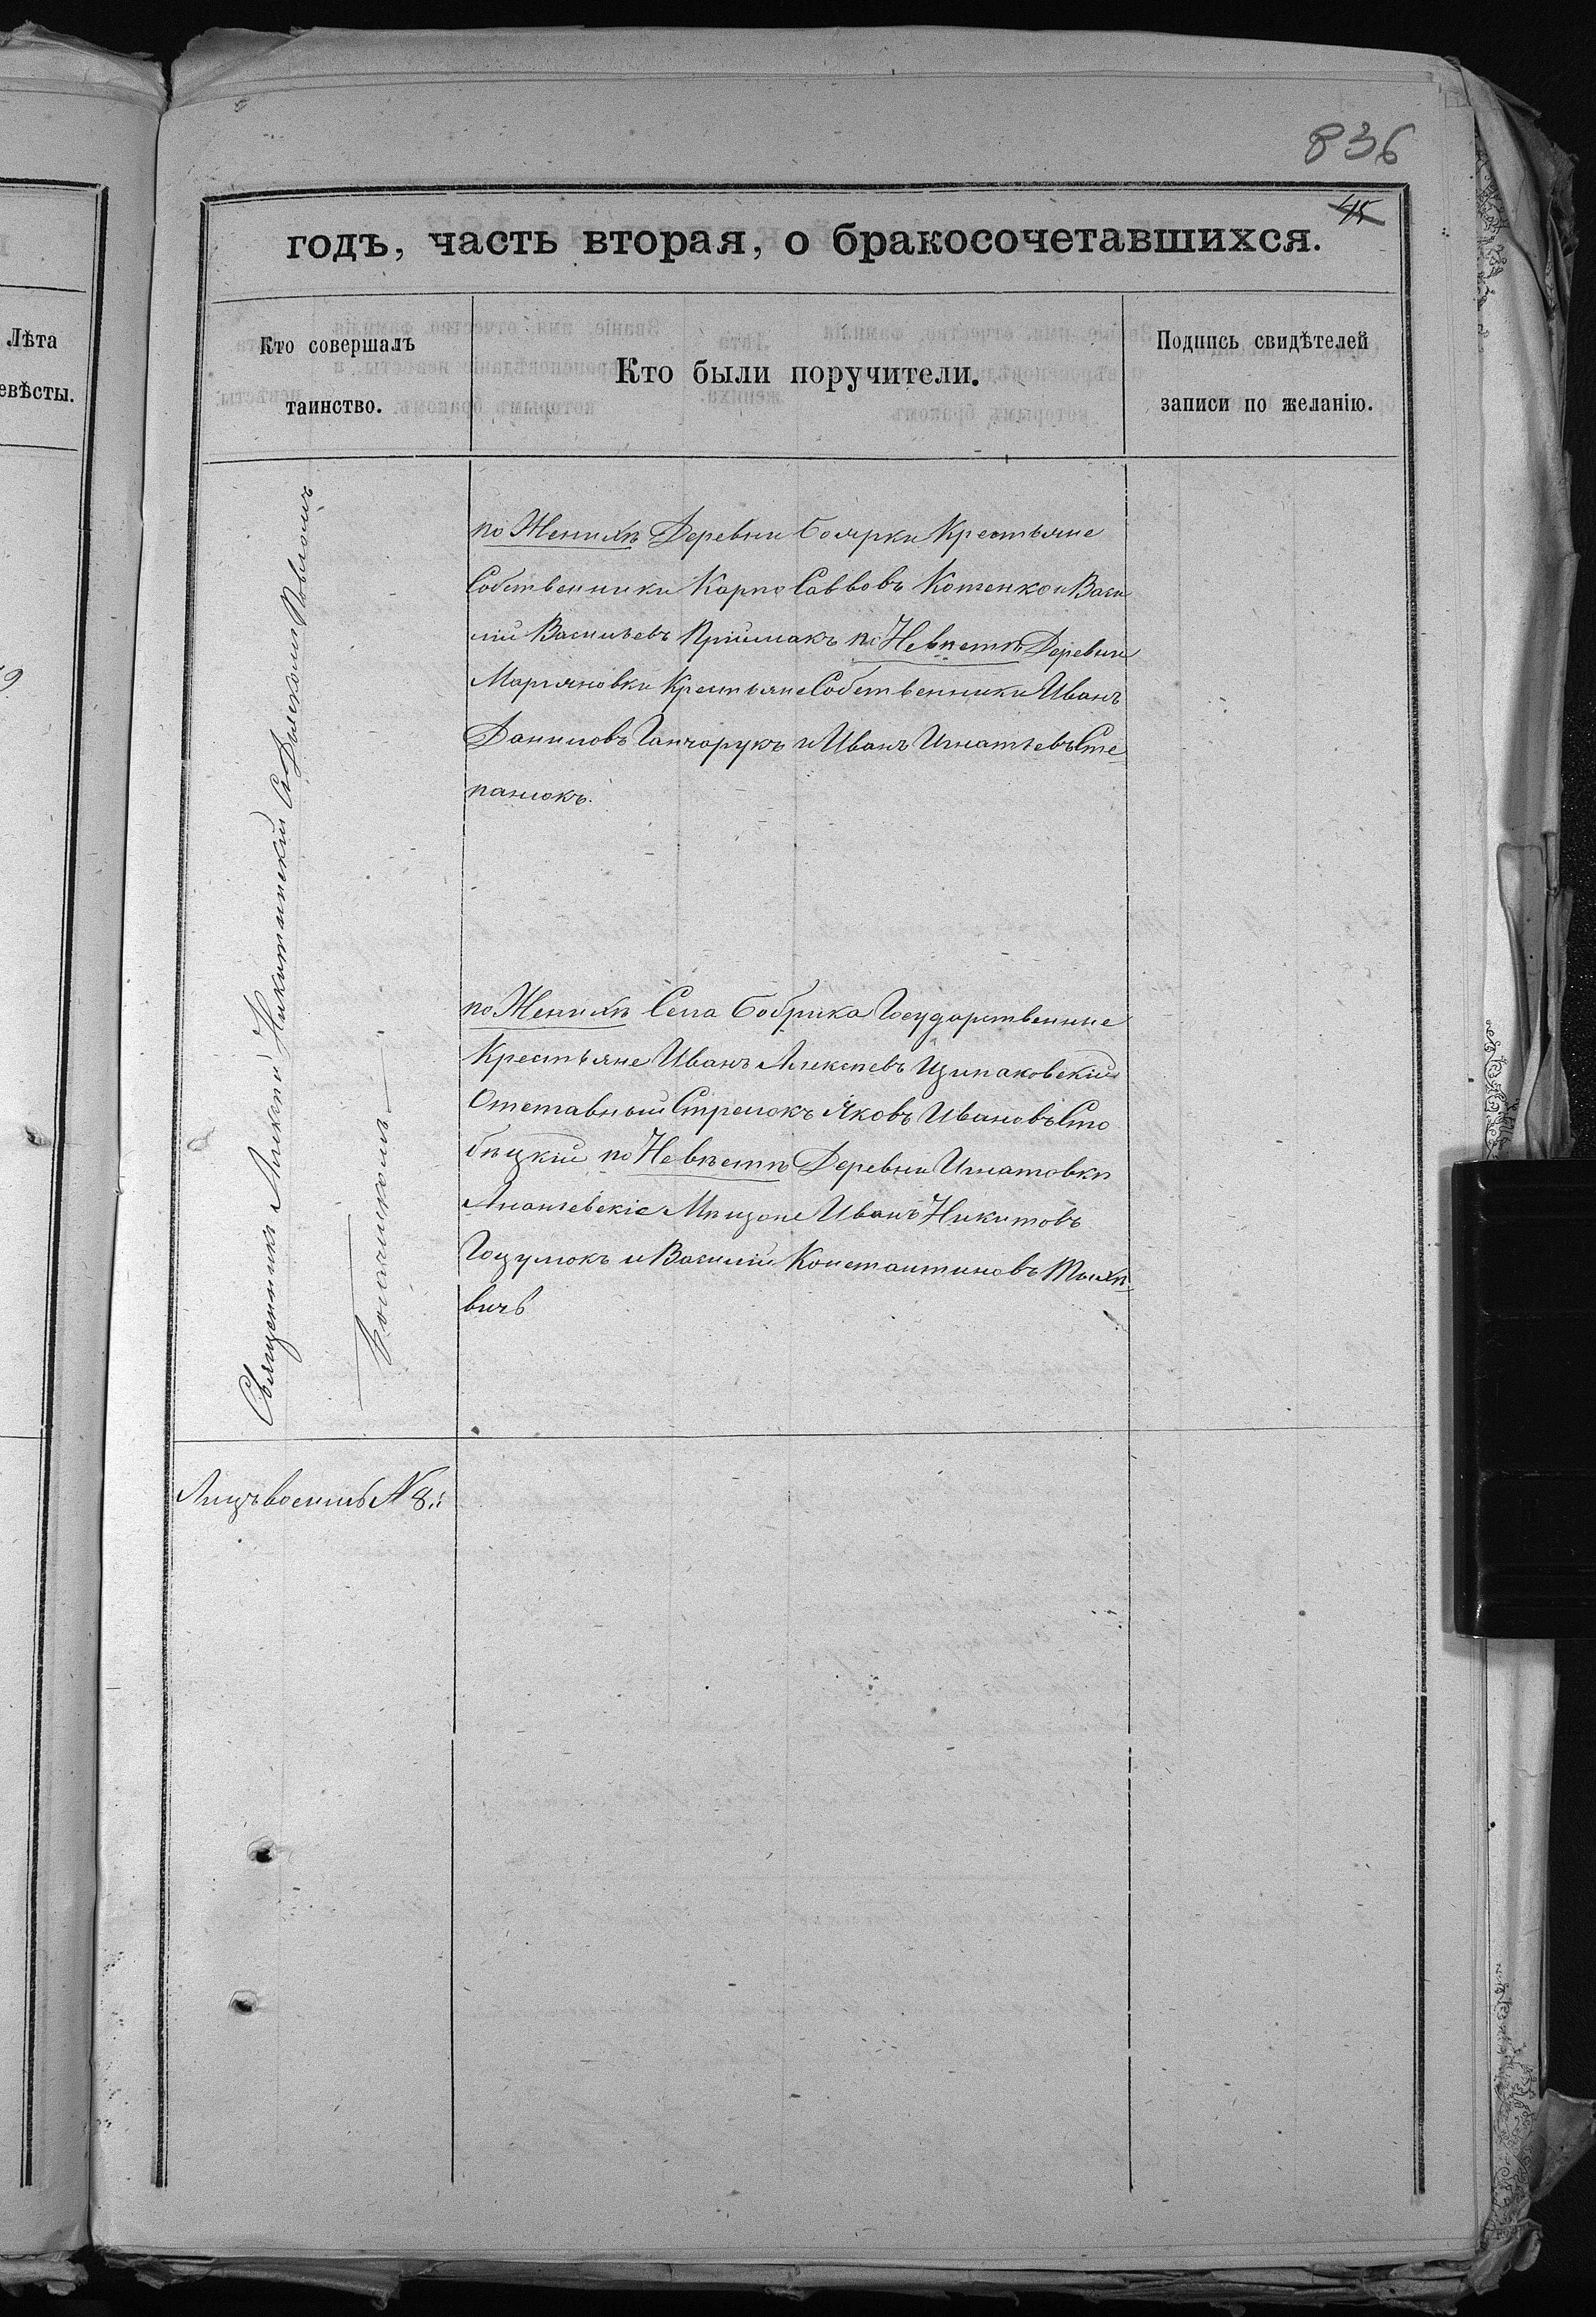 836
45
годъ, часть вторая, о бракосочетавшихся.
Лѣта
евѣсты.
Кто совершалъ
таинство.
Кто были поручители.
Подпись свидѣтелей
записи по желанію.
Священникъ Алексій Никитинскій съ Дьякономъ Павломъ
по Женихѣ Деревни Боярки Крестьяне
Собственники Карпо Саввовъ Котенко и Васи
лій Васильевъ Пріймакъ по Невѣстѣ Деревни
Марьяновки Крестьяне Собственники Иванъ
Даниловъ Ганчарукъ и Иванъ Игнатьевъ Сте
панюкъ.
по Женихѣ Села Бобрика Государственные
Крестьяне Иванъ Алексѣевъ Ципаковскій
Отставный Стрелокъ Яковъ Ивановъ Сто
бѣцкій по Невѣстѣ Деревни Игнатовки
Ананьевскіе Мѣщане Иванъ Никитовъ
Гоцулюкъ и Василій Константиновъ
вичъ
№ 8.